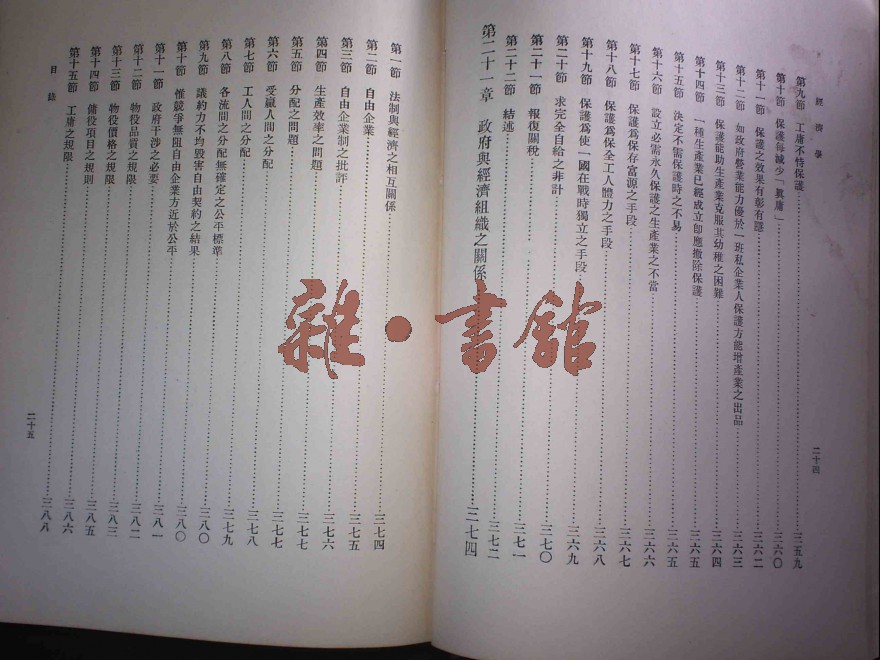 經濟學
二十四
第九節 工庸不恃保護 三五九
第十節 保護每減少「眞庸」 三六〇
第十一節 保護之效果有彰有隱 三六二
第十二節 如政府營業能力優於一班私企業人保護方能增產業之出品 三六三
第十三節 保護能助生產業克服其幼稚之困難 三六四
第十四節 一種生產業已經成立卽應撤除保護 三六五
第十五節 決定不需保護時之不易 三六五
第十六節 設立必需永久保護之生產業之不當 三六六
第十七節 保護爲保存富源之手段 三六七
第十八節 保護爲保全工人體力之手段 三六八
第十九節 保護爲使一國在戰時獨立之手段 三六九
第二十節 求完全自給之非計 三七〇
第二十一節 報復關稅 三七一
第二十二節 結述 三七二
第二十一章 政府與經濟組織之關係 三七四
第一節 法制與經濟之相互關係 三七四
第二節 自由企業 三七四
第三節 自由企業制之批評 三七五
第四節 生產效率之問題 三七六
第五節 分配之問題 三七七
第六節 受雇人間之分配 三七七
第七節 工人間之分配 三七八
第八節 各流間之分配無確定之公平標準 三七九
第九節 議約力不均毀害自由契約之結果 三八〇
第十節 惟競爭無阻自由企業方近於公平 三八〇
第十一節 政府干涉之必要 三八一
第十二節 物役品質之規限 三八二
第十三節 物役價格之規限 三八三
第十四節 傭役項目之規則 三八五
第十五節 工庸之規限 三八六
三八八
目錄
二十五
雜·書館